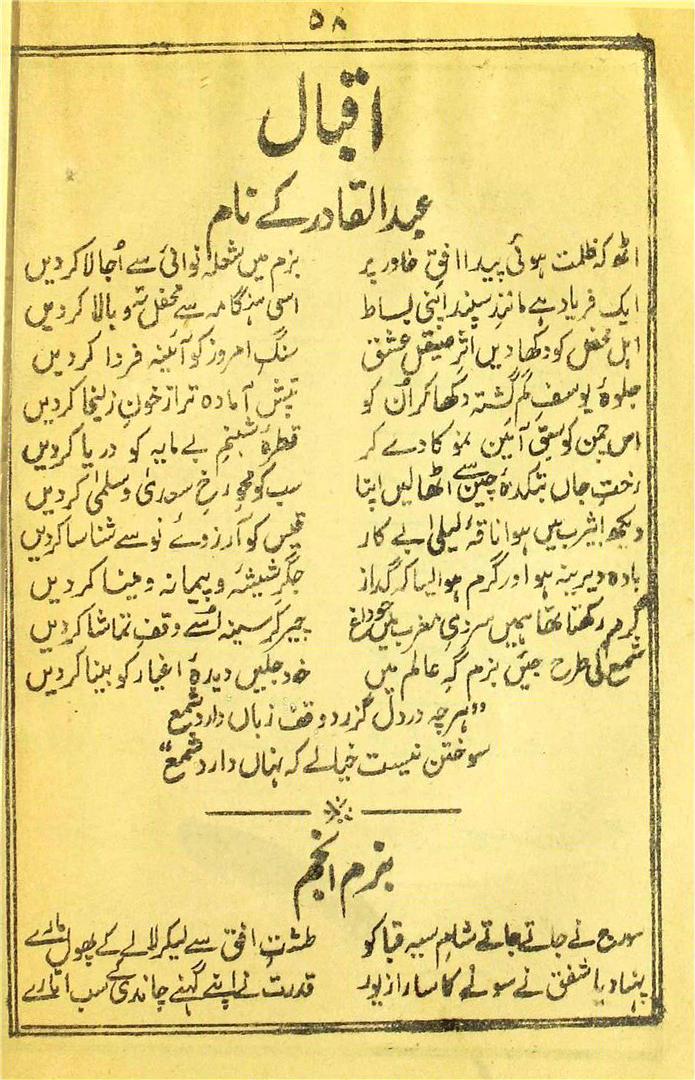 ۵۸
اقبال
عبدالقادر کے نام
اٹھ کہ ظلمت ہوئی پیدا افقِ خاور پر بزم میں شعلہ نوائی سے اُجالا کردیں
ایک فریاد ہے مانندِ سپند اپنی بساط اسی ہنگامہ سے محفل تہ و بالا کردیں
اہل محفل کو دکھادیں اثرِ صیقلِ عشق سنگِ امروز کو آئینہ فردا کردیں
جلوۂ یوسفِ گم گشتہ دکھا کر اُن کو تپش آمادہ تر از خونِ زلیخا کردیں
اس چمن کو سبق آئینِ نمو کا دے کر قطرۂ شبنم بے مایہ کو دریا کردیں
رختِ جاں بتکدۂ چین سے اٹھالیں اپنا سب کو محوِ رخِ سعدیٰ و سلمیٰ کردیں
دیکھ یثرب میں ہوا ناقۂ لیلیٰ بے کار قیس کو آرزوئے نو سے شناسا کردیں
بادہ دیرینہ ہو اور گرم ہو ایسا کہ گداز جگرِ شیشہ و پیمانہ و مینا کردیں
گرم رکھتا تھا ہمیں سردیِ مغرب میں جو داغ چیر کر سینہ اُسے وقفِ تماشا کردیں
شمع کی طرح جئیں بزم گہِ عالم میں خود جلیں دیدۂ اغیار کو بینا کردیں
"ہر چہ در دل گزرد وقف زباں دارد شمع
سوختن نیست خیالے کہ نہاں دارد شمع"
بزم انجم
سورج نے جاتے جاتے شام سیہ قبا کو طشتِ افق سے لیکر لالے کے پھول مارے
پہنا دیا شفق نے سونے کا سارا زیور قدرت نے اپنے گہنے چاندی کے سب اتارے